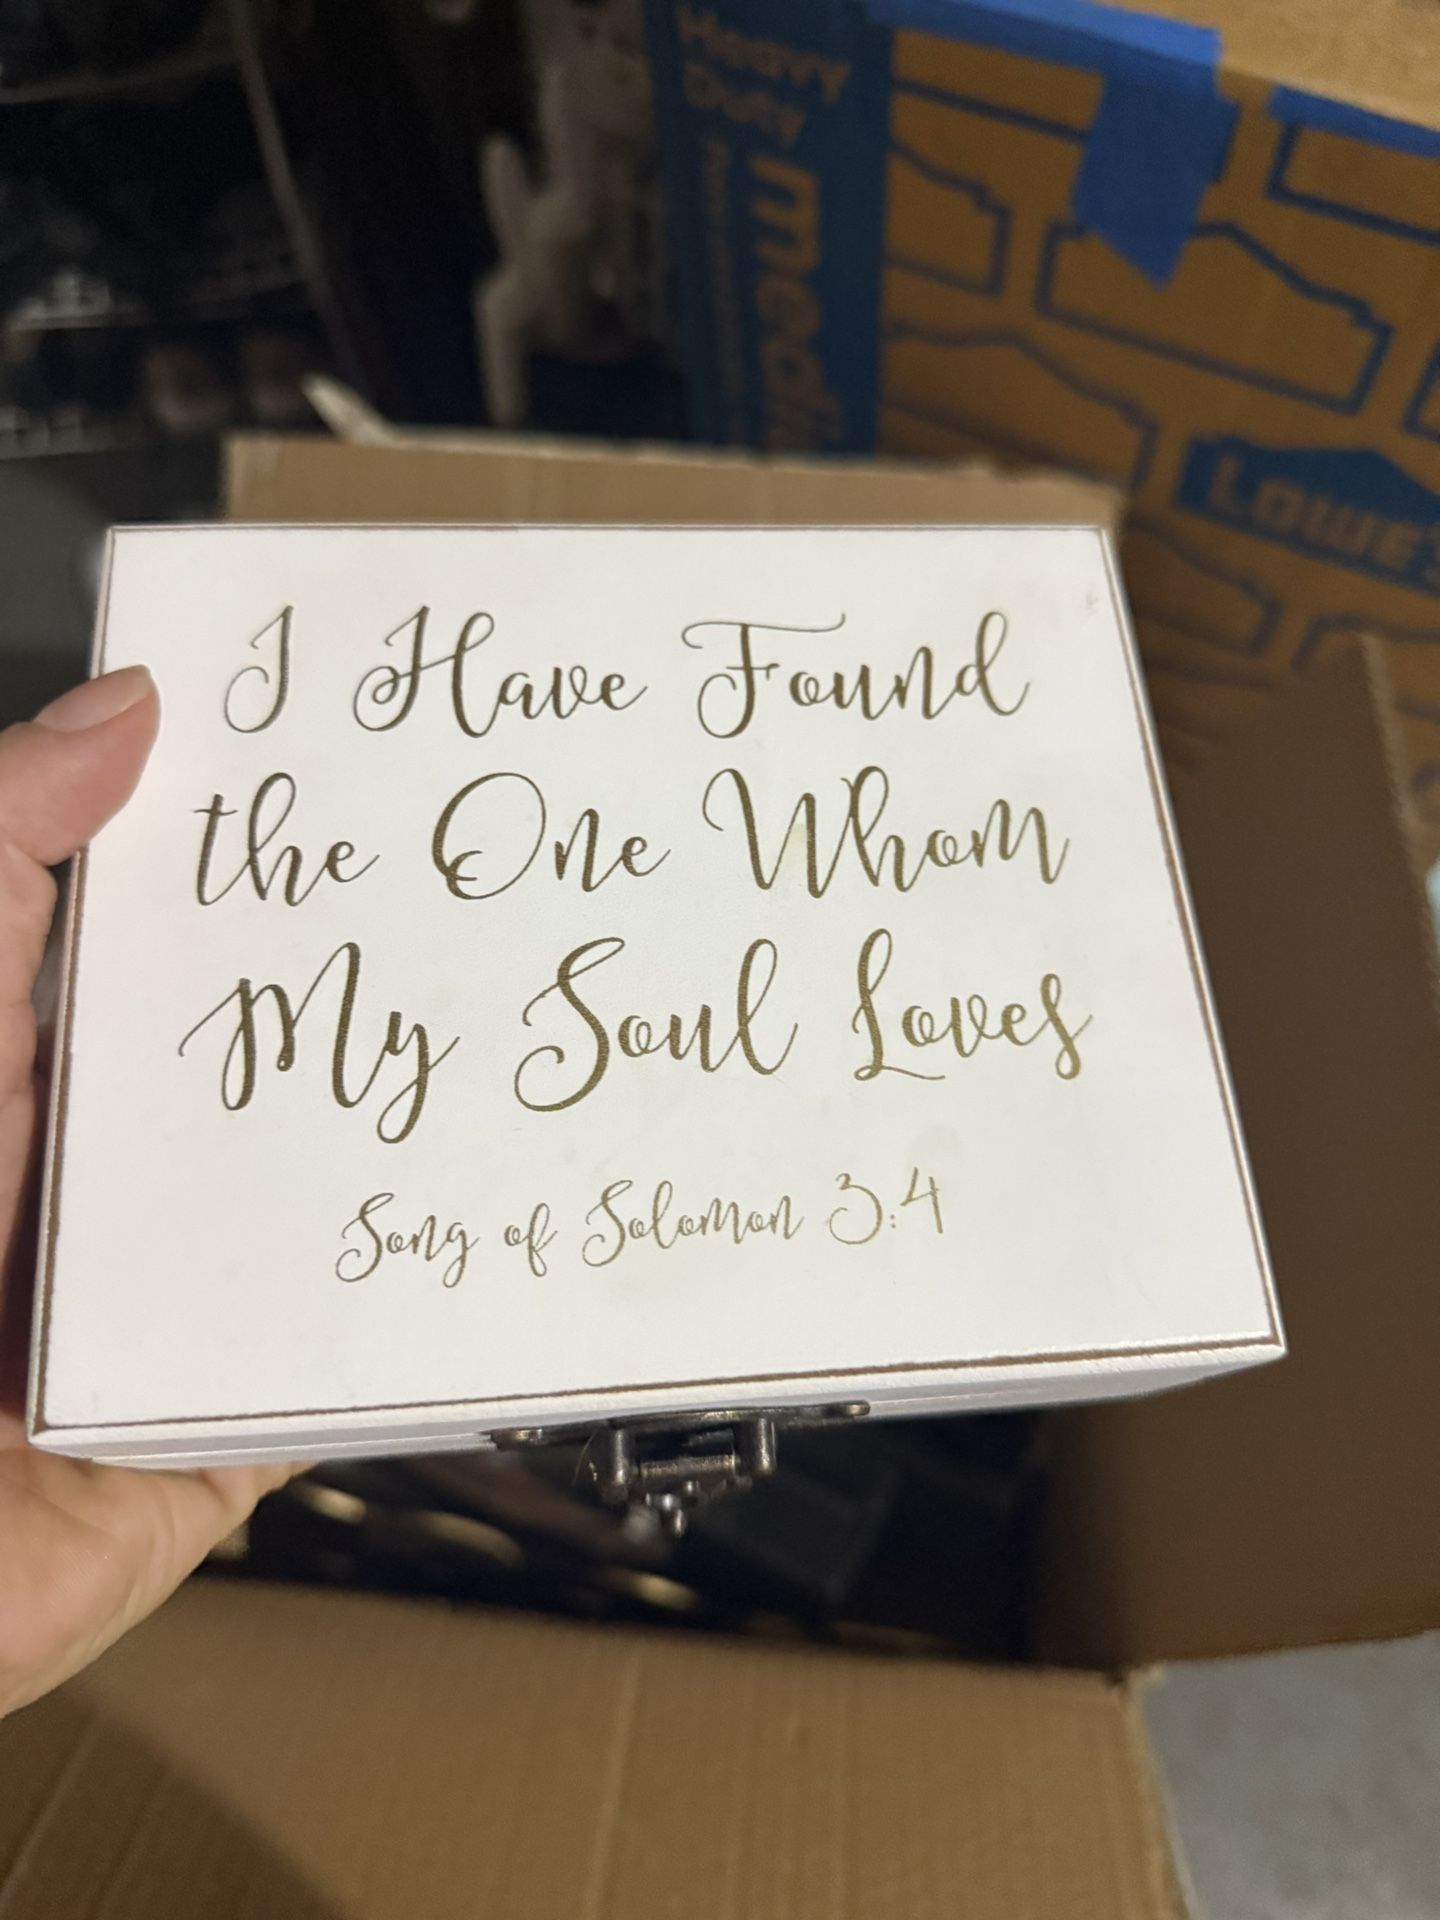 I Have Found
the One Whom
My Soul Loves
Song of Solomon 3:4
Heavy
Duty
medi
LOWE'S